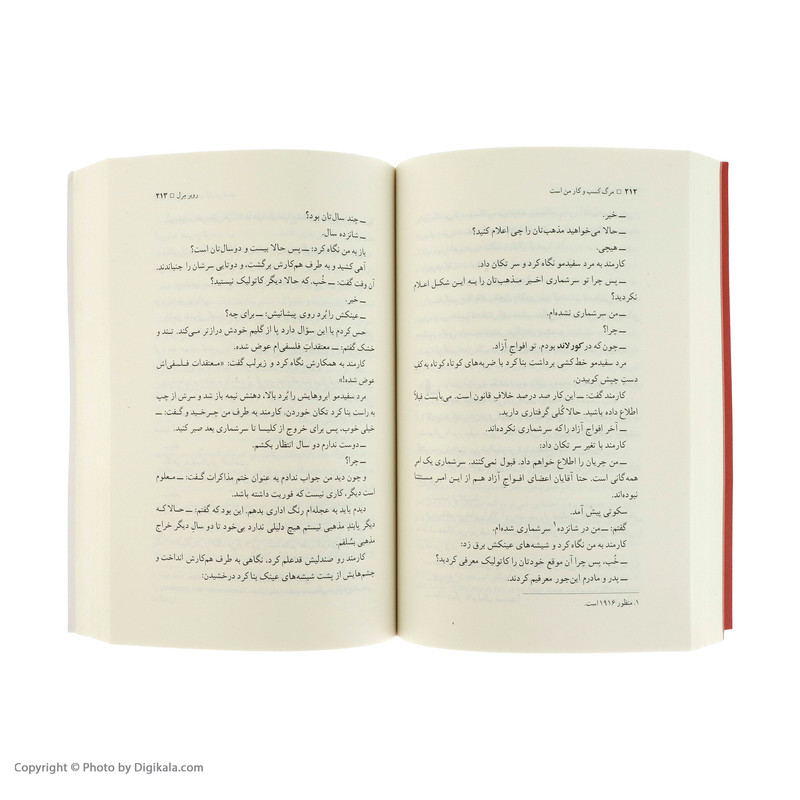 ۲۱۲ □ مرگ کسب و کار من است
ــ خیر.
ــ حالا می‌خواهید مذهب‌تان را چی اعلام کنید؟
ــ هیچی.
کارمند به مرد سفیدمو نگاه کرد و سر تکان داد.
ــ پس چرا تو سرشماری اخیر مذهب‌تان را به این شکل اعلام
نکردید؟
ــ من سرشماری نشده‌ام.
ــ چرا؟
ــ چون‌که در کورلاند بودم. تو افواج آزاد.
مرد سفیدمو خط‌کشی برداشت بنا کرد با ضربه‌های کوتاه کوتاه به کف
دستِ چپش کوبیدن.
کارمند گفت: ــ این کار صد درصد خلافِ قانون است. می‌بایست قبلاً
اطلاع داده باشید. حالا کُلی گرفتاری دارید.
ــ آخر افواج آزاد را که سرشماری نکرده‌اند.
کارمند با تغیر سر تکان داد:
ــ من جریان را اطلاع خواهم داد. قبول نمی‌کنند. سرشماری یک امر
همه‌گانی است. حتا آقایان اعضای افواج آزاد هم از این امر مستثنا
نبوده‌اند.
سکوتی پیش آمد.
گفتم: ــ من در شانزده۱ سرشماری شده‌ام.
کارمند به من نگاه کرد و شیشه‌های عینکش برق زد:
ــ خُب، پس چرا آن موقع خودتان را کاتولیک معرفی کردید؟
ــ پدر و مادرم این‌جور معرفیم کردند.
۱. منظور ۱۹۱۶ است.
روبر مرل □ ۲۱۳
ــ چند سال‌تان بود؟
ــ شانزده سال.
باز به من نگاه کرد: ــ پس حالا بیست و دو سال‌تان است؟
آهی کشید و به طرف هم‌کارش برگشت، و دوتایی سرشان را جنباندند.
آن وقت گفت: ــ خُب، که حالا دیگر کاتولیک نیستید؟
ــ خیر.
ــ عینکش را بُرد روی پیشانیش: ــ برای چه؟
حس کردم با این سؤال دارد پا از گلیم خودش درازتر می‌کند. تند و
خشک گفتم: ــ معتقداتِ فلسفی‌ام عوض شده.
کارمند به همکارش نگاه کرد و زیرلب گفت: «معتقدات فلسفی‌اش
عوض شده!»
مرد سفیدمو ابروهایش را بُرد بالا، دهنش نیمه باز شد و سرش از چپ
به راست بنا کرد تکان خوردن. کارمند به طرف من چرخید و گفت: ــ
خیلی خوب، پس برای خروج از کلیسا تا سرشماری بعد صبر کنید.
ــ دوست ندارم دو سال انتظار بکشم.
ــ چرا؟
و چون دید من جواب ندادم به عنوان ختم مذاکرات گفت: ــ معلوم
است دیگر، کاری نیست که فوریت داشته باشد.
دیدم باید به عجله‌ام رنگ اداری بدهم. این بود که گفتم: ــ حالا که
دیگر پابند مذهبی نیستم هیچ دلیلی ندارد بی‌خود تا دو سالِ دیگر خراج
مذهبی بسُلفم.
کارمند رو صندلیش قدعلم کرد، نگاهی به طرف هم‌کارش انداخت و
چشم‌هایش از پشت شیشه‌های عینک بنا کرد درخشیدن:
Copyright © Photo by Digikala.com